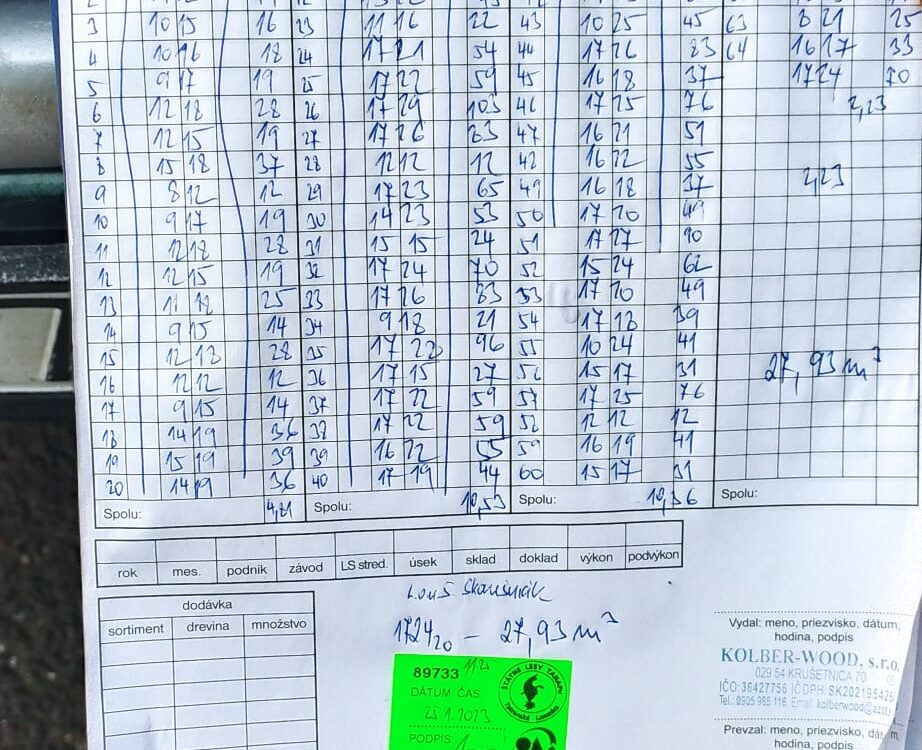 3 10 15 16 23 11 16 22 43 10 25 45 63 8 21 25
4 10 16 18 24 17 21 54 44 17 26 83 64 16 17 33
5 9 17 19 25 17 22 59 45 16 18 37 17 24 70
6 12 18 28 26 17 29 103 46 17 25 76 2,23
7 12 15 19 27 17 26 83 47 16 21 51
8 15 18 37 28 12 12 12 48 16 22 55
9 8 12 12 29 17 23 65 49 16 18 37 2,23
10 9 17 19 30 14 23 53 50 17 20 49
11 12 18 28 31 15 15 24 51 17 27 90
12 12 15 19 32 17 24 70 52 15 24 62
13 11 18 25 33 17 26 83 53 17 20 49
14 9 15 14 34 9 18 21 54 17 18 39
15 12 18 28 35 17 28 96 55 10 24 41
16 12 12 12 36 17 15 27 56 15 17 31 27,93 m³
17 9 15 14 37 17 22 59 57 17 25 76
18 14 19 36 38 17 22 59 58 12 12 12
19 15 19 39 39 16 22 55 59 16 19 41
20 14 19 36 40 17 19 44 60 15 17 31
Spolu: 4,81 Spolu: 10,53 Spolu: 10,36 Spolu:
rok mes. podnik závod LS stred. úsek sklad doklad výkon podvýkon
dodávka
sortiment drevina množstvo
1724 20 – 27,93 m³
Vydal: meno, priezvisko, dátum,
hodina, podpis
KOLBER-WOOD, s.r.o.
029 54 KRUŠETNICA 70
IČO:36427756 IČDPH:SK202195426
Tel.: 0905 985 116 Email:
89733 1125
ŠTÁTNE LESY TANAPu
Tatranská Lomnica
DÁTUM, ČAS
25.1.2023
PODPIS
Prevzal: meno, priezvisko,
hodina, podpis